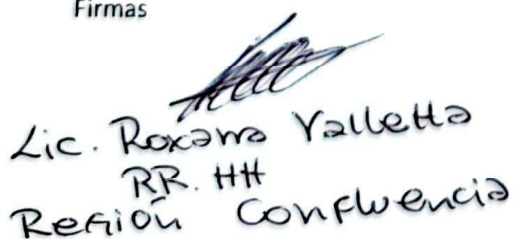 Firmas
Lic. Roxana Valletta
RR. HH
Región Confluencia